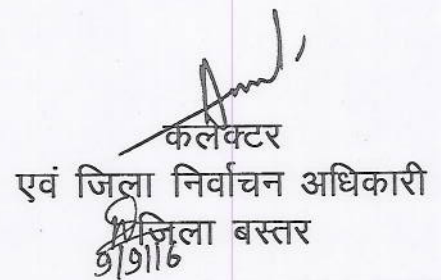 कलेक्टर
एवं जिला निर्वाचन अधिकारी
जिला बस्तर
9/9/16